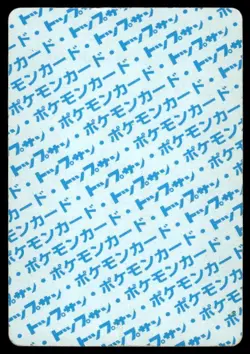 ポケモンカード・
ポケモンカード・トップサン・
トップサン・ポケモンカード・
ポケモンカード・トップサン・
トップサン・ポケモンカード・
ポケモンカード・トップサン・
トップサン・ポケモンカード・
ポケモンカード・トップサン・
トップサン・ポケモンカード・
ポケモンカード・トップサン・
トップサン・ポケモンカード・
ポケモンカード・トップサン・
トップサン・ポケモンカード・
トップサン・